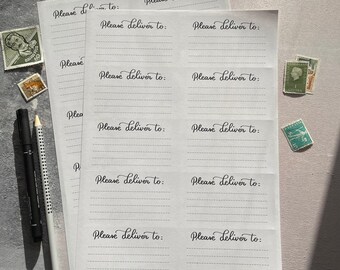 Please deliver to:
Please deliver to:
Please deliver to:
Please deliver to:
Please deliver to:
Please deliver to:
Please deliver to:
Please deliver to:
Please deliver to:
Please deliver to:
Please deliver to:
Please deliver to: